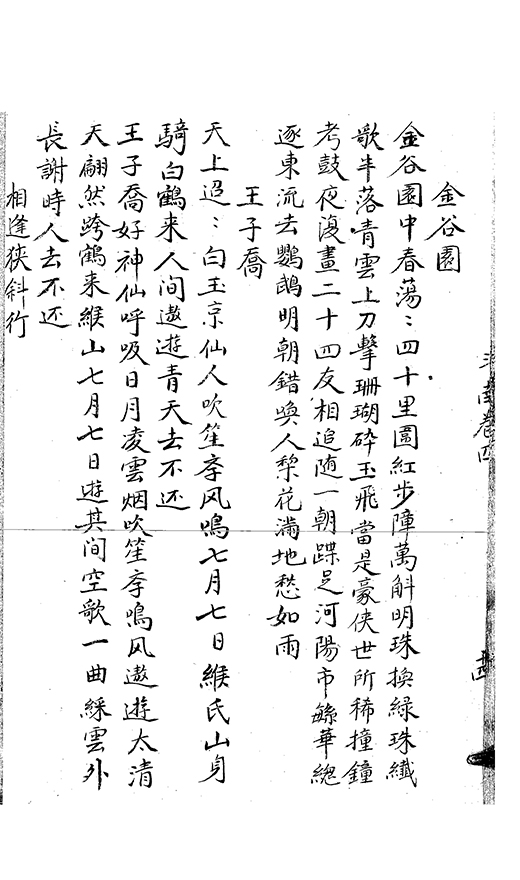 金谷園
金谷園中春蕩：四十里圍紅步障萬斛明珠換緑珠纖
歌半落青雲上刀擊珊瑚碎玉飛當是豪俠世所稀撞鐘
考鼓夜復晝二十四友相追随一朝蹀足河陽市繇華総
逐東流去鸚鵡明朝錯喚人梨花滿地愁如雨
王子喬
天上迢：白玉京仙人吹笙李风鳴七月七日緱氏山身
騎白鶴来人间遨遊青天去不还
王子喬好神仙呼吸日月凌雲烟吹笙李鳴风遨遊太清
天翩然跨鶴来緱山七月七日遊其间空歌一曲綵雲外
長謝時人去不还
相逢狹斜行